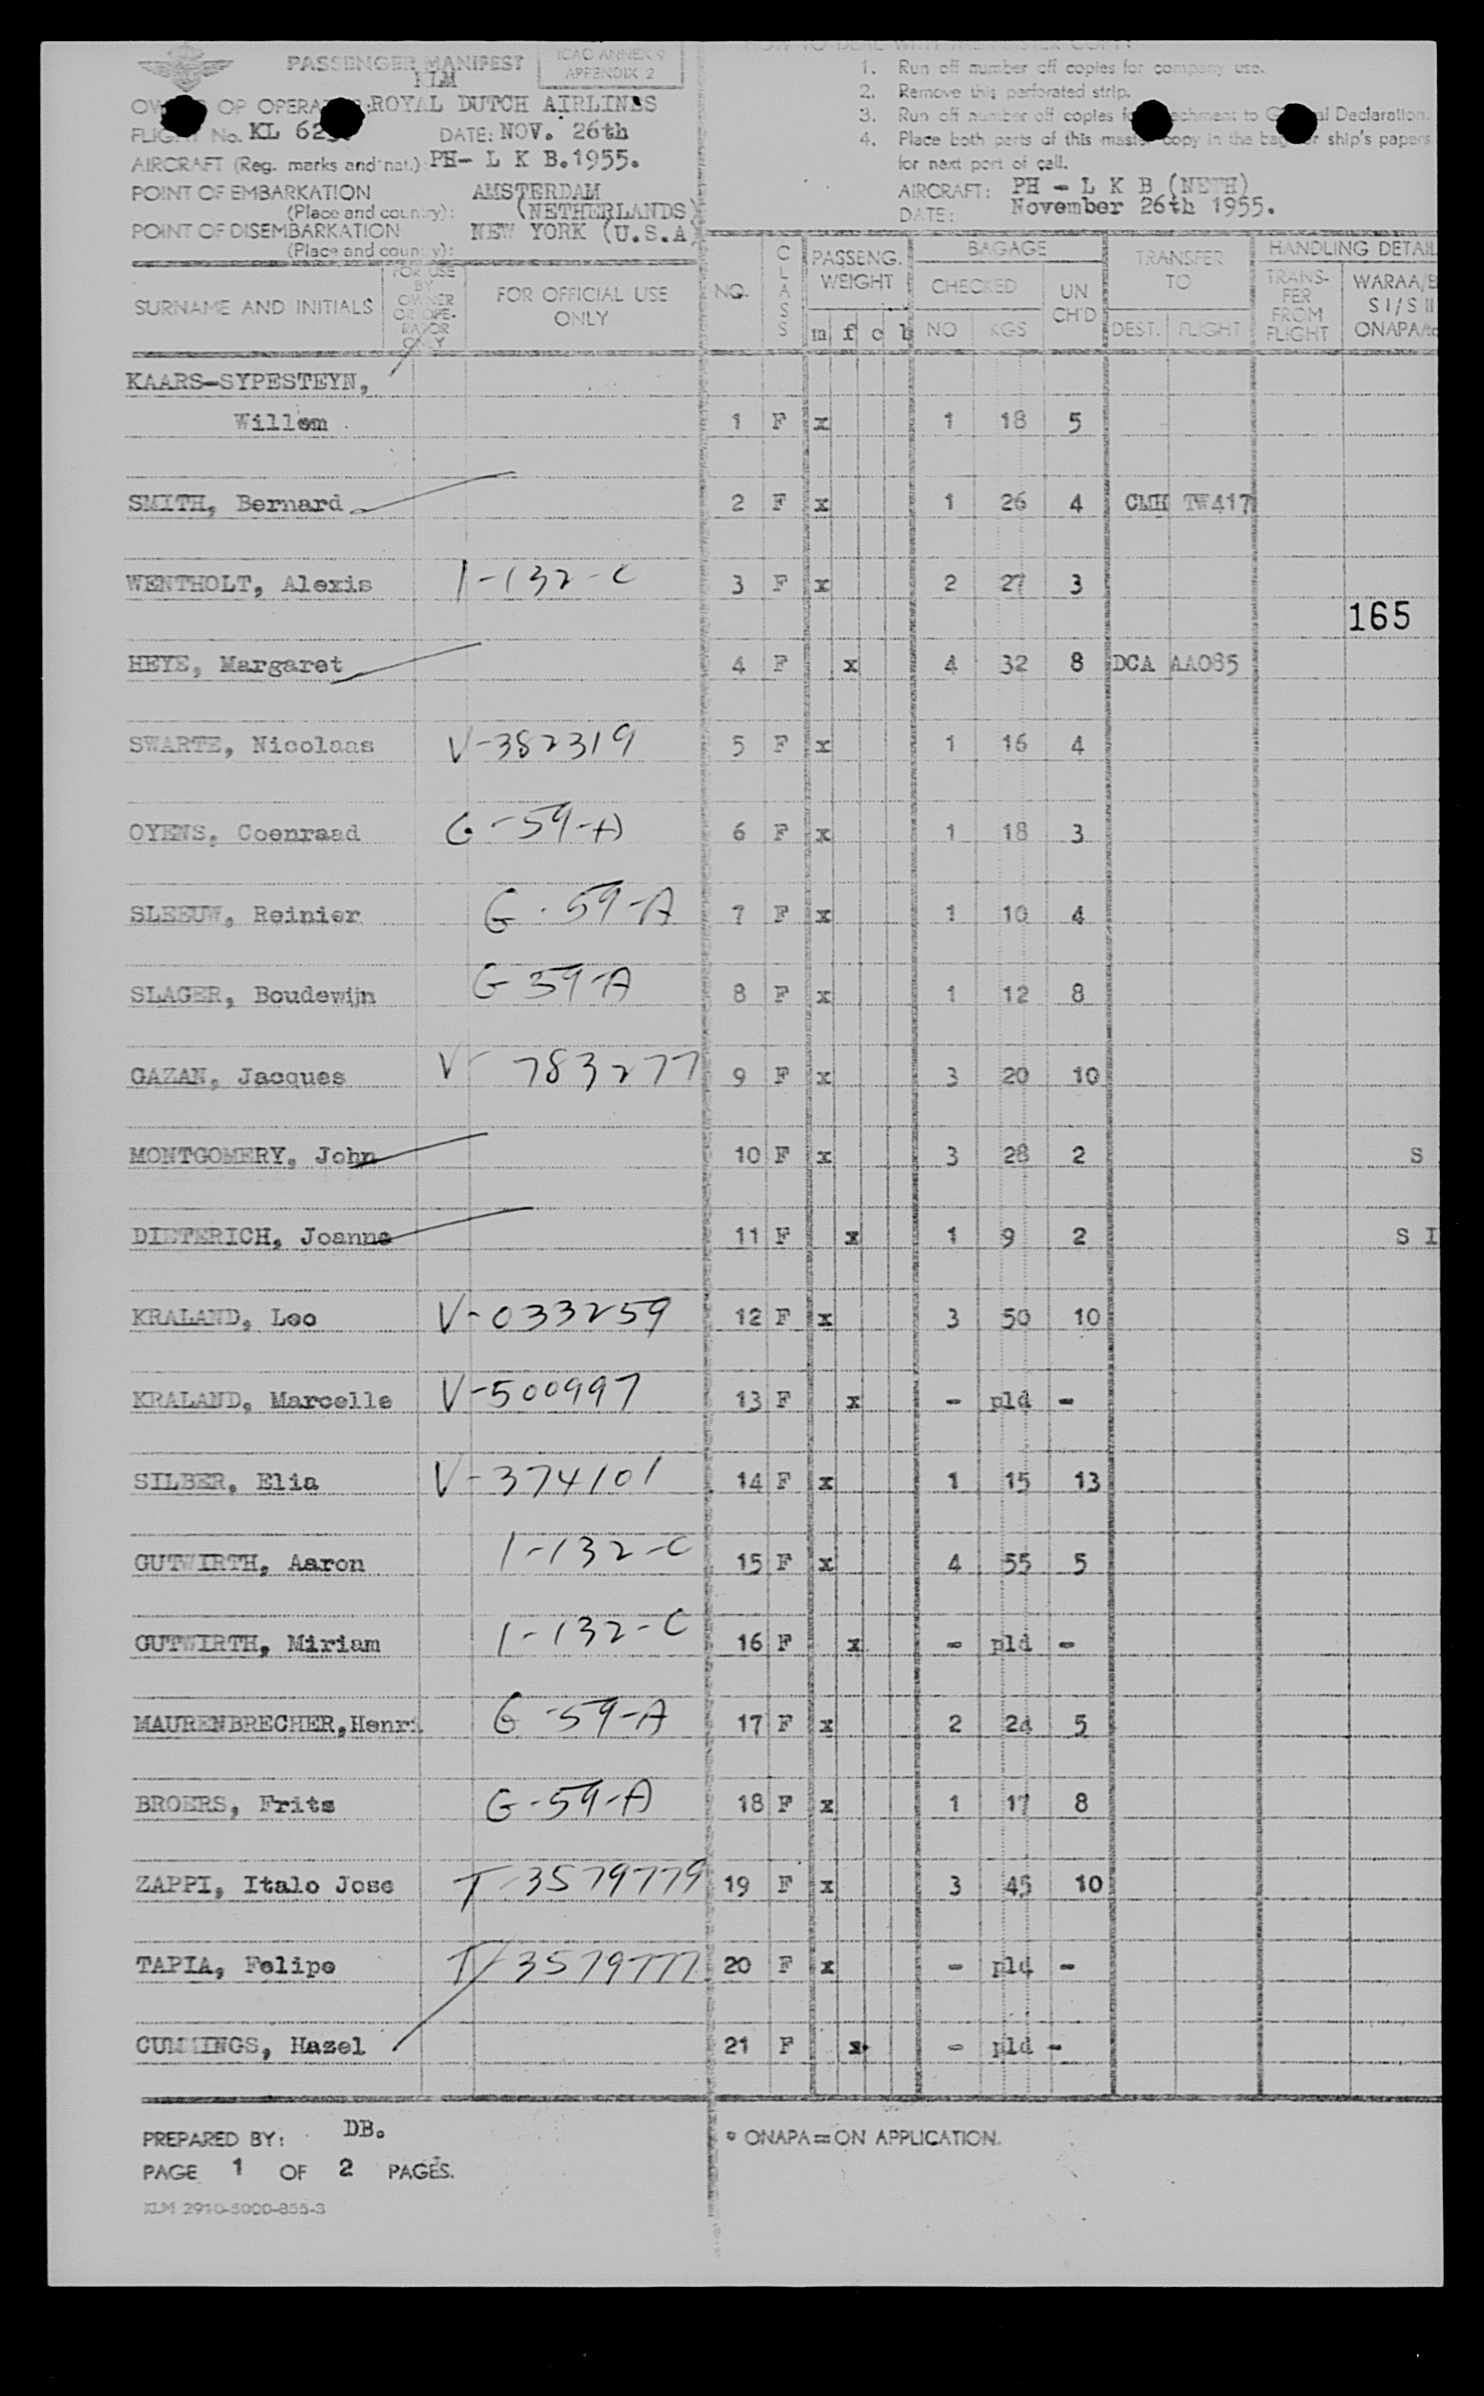 PASSENGER MANIFEST
KLM
ICAO ANNEX 9
APPENDIX 2
OF OPERA ROYAL DUTCH AIRLINES
FLIGHT No. KL 62 DATE: NOV. 26th
AIRCRAFT (Reg. marks and nat.) PH- L K B.1955.
POINT OF EMBARKATION AMSTERDAM
(Place and country): (NETHERLANDS)
POINT OF DISEMBARKATION NEW YORK (U.S.A)
(Place and country):
HOW TO DEAL WITH THE MASTER COPY:
1. Run off number off copies for company use.
2. Remove this perforated strip.
3. Run off number off copies for attachment to General Declaration.
4. Place both parts of this master copy in the bag or ship's papers
for next port of call.
AIRCRAFT: PH - L K B (NETH)
DATE: November 26th 1955.
SURNAME AND INITIALS
FOR USE BY OWNER OR OPERATOR ONLY
FOR OFFICIAL USE ONLY
NO.
CLASS
PASSENG. WEIGHT
m f c b
BAGAGE
CHECKED
NO KGS
UN CH'D
TRANSFER TO
DEST. FLIGHT
HANDLING DETAIL
TRANS-FER FROM FLIGHT
WARAA/E
S I / S II
ONAPA
KAARS-SYPESTEYN,
Willem 1 F x 1 18 5
SMITH, Bernard 2 F x 1 26 4 CMH TW417
WENTHOLT, Alexis 1-132-C 3 F x 2 27 3
165
HEYE, Margaret 4 F x 4 32 8 DCA AA085
SWARTE, Nicolaas V-382319 5 F x 1 16 4
OYENS, Coenraad G-59-A 6 F x 1 18 3
SLEEUW, Reinier G-59-A 7 F x 1 10 4
SLAGER, Boudewijn G-59-A 8 F x 1 12 8
GAZAN, Jacques V 783277 9 F x 3 20 10
MONTGOMERY, John 10 F x 3 28 2 S
DIETERICH, Joanne 11 F x 1 9 2 S I
KRALAND, Leo V-033259 12 F x 3 50 10
KRALAND, Marcelle V-500997 13 F x - pld -
SILBER, Elia V-374101 14 F x 1 15 13
GUTWIRTH, Aaron 1-132-C 15 F x 4 55 5
GUTWIRTH, Miriam 1-132-C 16 F x - pld -
MAURENBRECHER,Henri 6-59-A 17 F x 2 24 5
BROERS, Frits G-59-A 18 F x 1 17 8
ZAPPI, Italo Jose T-3579779 19 F x 3 45 10
TAPIA, Felipe T-3579777 20 F x - pld -
CUMMINGS, Hazel 21 F x - pld -
PREPARED BY: DB.
PAGE 1 OF 2 PAGES.
KLM 2910-5000-855-3
* ONAPA=ON APPLICATION.